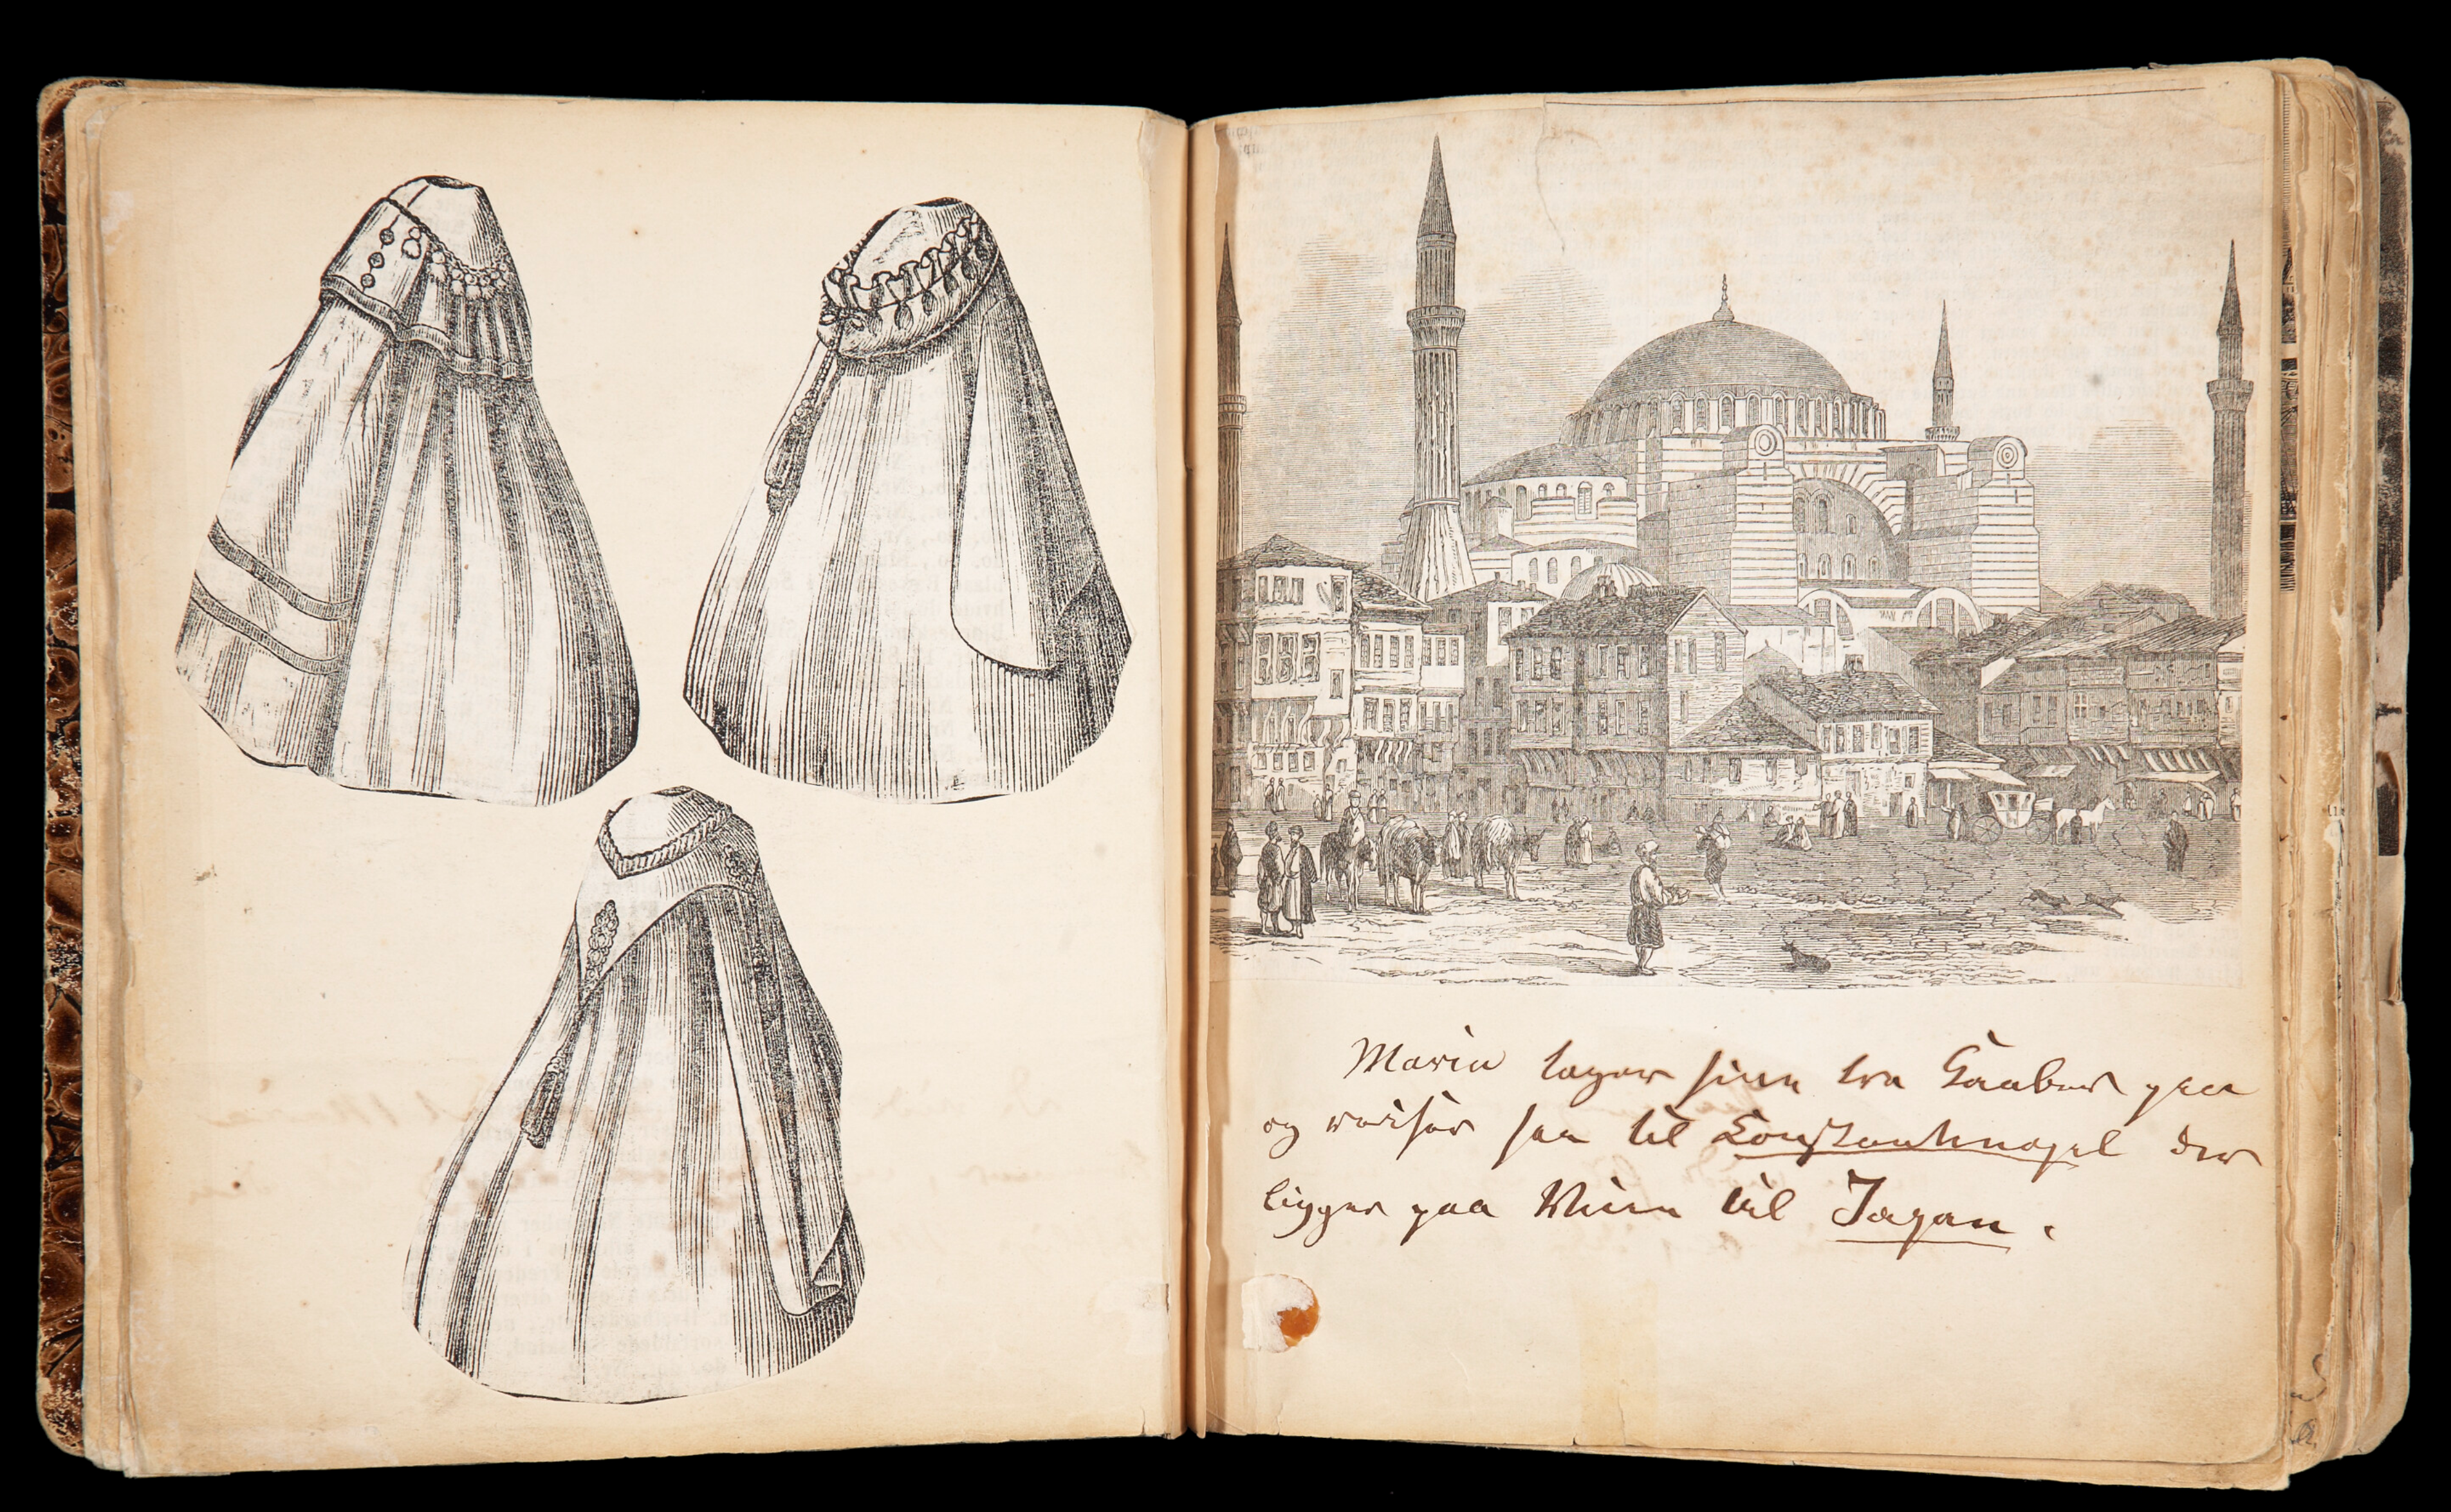 Maria tager sine tre Kaaber paa
og reiser saa til Konstantinopel der
ligger paa Veien til Japan.